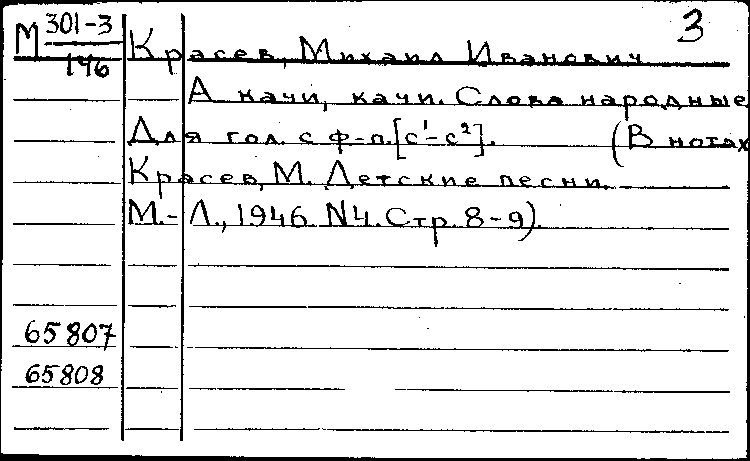 3
М 301-3
146
Красев, Михаил Иванович
А качи, качи. Слова народные
Для гол. с ф-п. [c¹-c²]. (В нотах
Красев, М. Детские песни.
М.-Л., 1946. N4. Стр. 8-9).
65807
65808